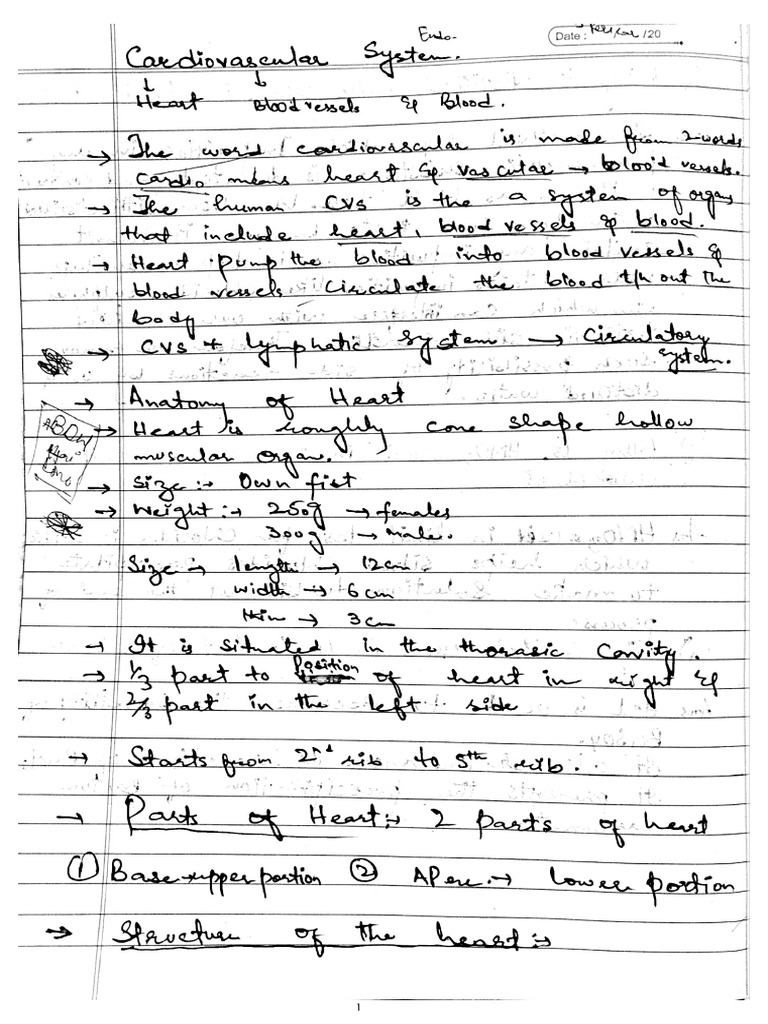 Endo-
Date : /20
Cardiovascular System.
↓ ↓
Heart Blood vessels & Blood.
→ The word cardiovascular is made from 2 words
cardio means heart & vascular → blood vessels.
→ The human CVS is the a system of organs
that include heart, blood vessels & blood.
→ Heart pump the blood into blood vessels &
blood vessels circulate the blood t/h out the
body
→ CVS + lymphatic system → Circulatory
system.
→ Anatomy of Heart
→ Heart is roughly cone shape hollow
muscular organ.
→ Size :- Own fist
→ Weight :- 250g → females
300g → Male.
Size → length → 12cm
width → 6 cm
thin → 3 cm
→ It is situated in the thorasic cavity.
→ 1/3 part to Position of heart in right &
2/3 part in the left side
→ Starts from 2nd rib to 5th rib.
→ Parts of Heart :- 2 parts of heart
① Base → upper portion ② Apex → Lower portion
→ Structure of the heart :-
1